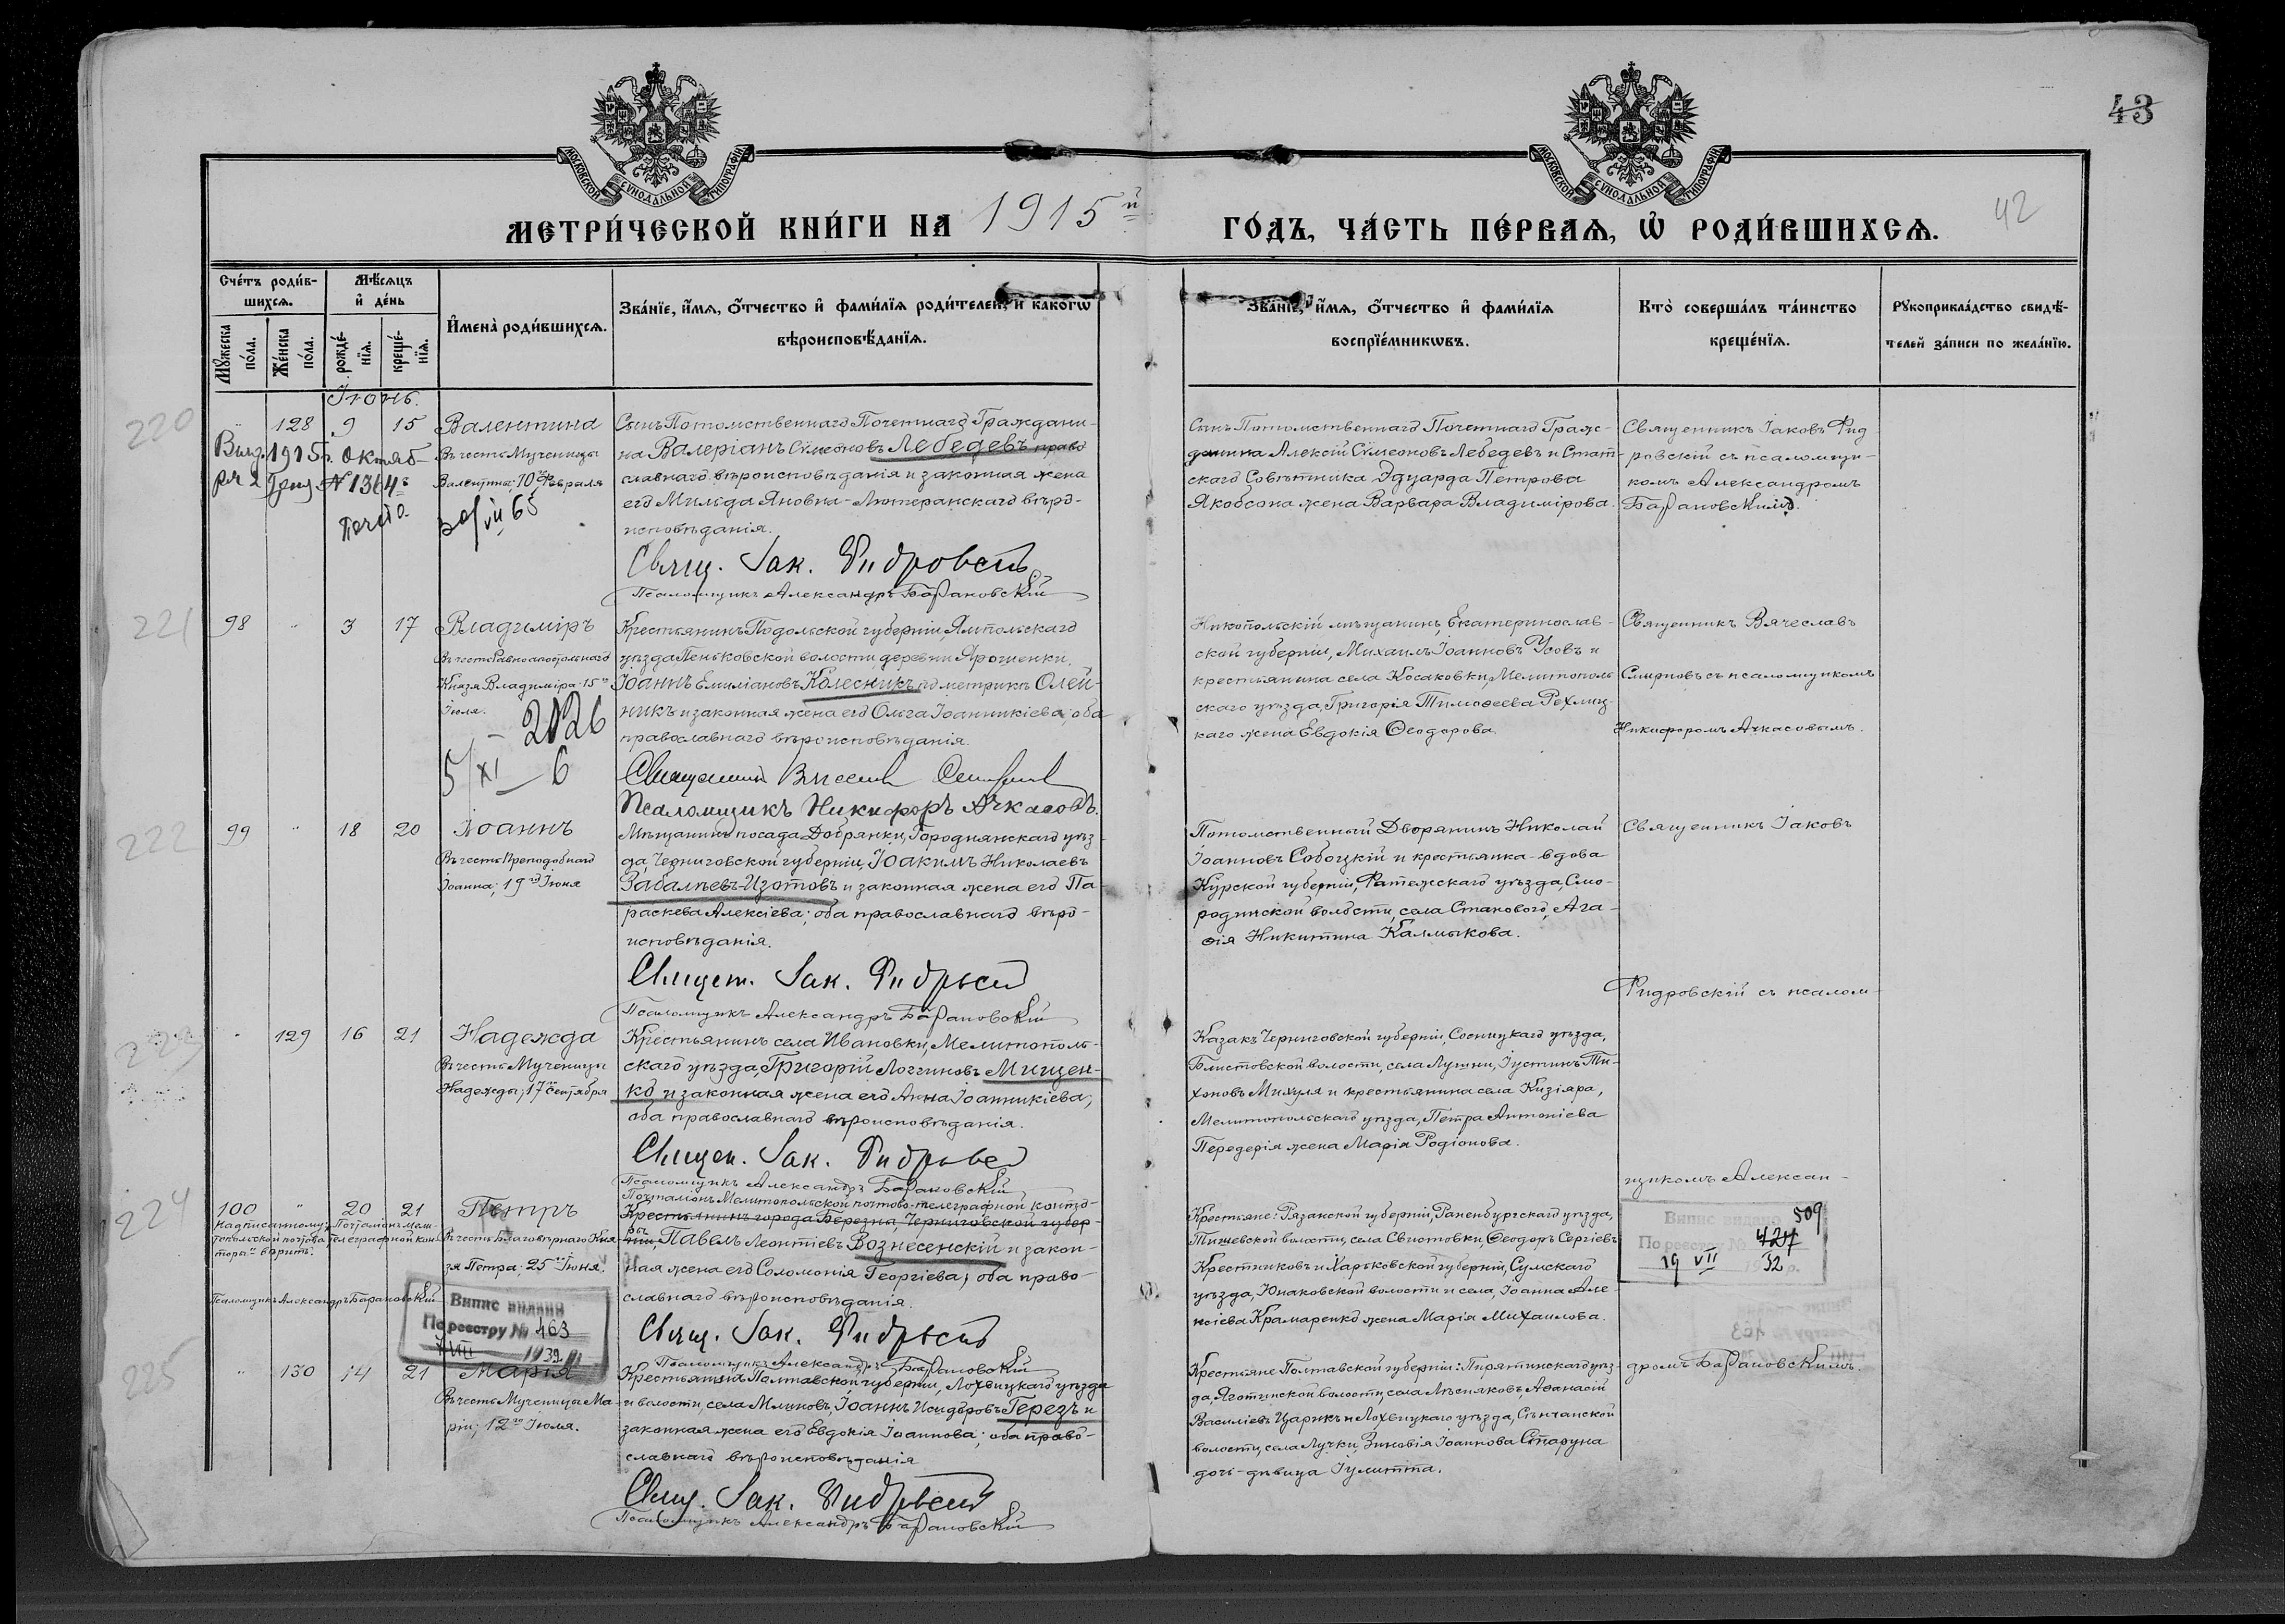 43
42
МОСКОВСКОЙ СѴНОДАЛЬНОЙ ТИПОГРАФІИ
МОСКОВСКОЙ СѴНОДАЛЬНОЙ ТИПОГРАФІИ
МЕТРИ́ЧЕСКОЙ КНИ́ГИ НА 1915й
ГО́ДЪ, ЧА́СТЬ ПЕ́РВАѦ, Ѡ҆ РОДИ́ВШИХСѦ.
Сче́тъ роди́в-
шихсѧ.
Мꙋ́жеска по́ла.
Же́нска по́ла.
Мѣ́сѧцъ
и҆ де́нь
рожде́-
нїѧ.
креще́-
нїѧ.
И҆мена̀ роди́вшихсѧ.
Зва́нїе, и҆́мѧ, ѻ҆́тчество и҆ фами́лїѧ роди́телей, и҆ какого
вѣроисповѣ́данїѧ.
Зва́нїе, и҆́мѧ, ѻ҆́тчество и҆ фами́лїѧ
воспрїе́мниковъ.
Кто̀ соверша́лъ та́инство
креще́нїѧ.
Рꙋкоприкла́дство свидѣ́-
телей за́писи по жела́нїю.
Іюнь.
220
" 128 9 15 Валентина
Въ честь Мученицы
Валентины; 10го Февраля
Выд. 1915г. Октяб-
ря 2 № 1364
30/VII 65
Сынъ Потомственнаго Почетнаго Граждани-
на Валеріанъ Сѵмеоновъ Лебедевъ право
славнаго вѣроисповѣданія и законная жена
его Мильда Яновна - Лютеранскаго вѣро-
исповѣданія.
Свящ. Іак. Фидровскій
Псаломщикъ Александръ Барановскій
Сынъ Потомственнаго Почетнаго Граж-
данина Алексій Сѵмеоновъ Лебедевъ и Стат-
скаго Совѣтника Эдуарда Петрова
Якобсона жена Варвара Владимірова.
Священникъ Іаковъ Фид
ровскій съ псаломщи-
комъ Александромъ
Барановскимъ.
221
98 " 3 17 Владиміръ
Въ честь Равноапостольнаго
Князя Владиміра 15го
Іюля.
2026
5/XI 6
Крестьянинъ Подольской губерніи Ямпольскаго
уѣзда Пеньковской волости, деревни Ярошенки,
Іоаннъ Емиліановъ Колесникъ по метрикѣ Олей-
никъ и законная жена его Ольга Іоанникіева; оба
православнаго вѣроисповѣданія.
Священникъ Вячеслав Смирнов
Псаломщикъ Никифоръ Ачкасовъ.
Никопольскій мѣщанинъ, Екатеринослав-
ской губерніи, Михаилъ Іоанновъ Усовъ и
крестьянина села Косаковки, Мелитополь
скаго уѣзда, Григорія Тимоѳеева Рехлиц-
каго жена Евдокія Ѳеодорова.
Священникъ Вячеславъ
Смирновъ съ псаломщикомъ
Никифоромъ Ачкасовымъ.
222
99 " 18 20 Іоаннъ
Въ честь Преподобнаго
Іоанна; 19го Іюня
Мѣщанинъ посада Добрянки, Городнянскаго уѣз-
да, Черниговской губерніи, Іоакимъ Николаевъ
Забалѣевъ-Изотовъ и законная жена его Па
раскева Алексіева; оба православнаго вѣро-
исповѣданія.
Священ. Іак. Фидровскій
Псаломщикъ Александръ Барановскій
Потомственный Дворянинъ Николай
Іоанновъ Собоцкій и крестьянка-вдова
Курской губерніи, Фатежскаго уѣзда, Смо-
родинской волости, села Становаго, Ага-
ѳія Никитина Калмыкова.
Священникъ Іаковъ
Фидровскій съ псалом-
223
" 129 16 21 Надежда
Въ честь Мученицы
Надежды; 17го Сентября
Крестьянинъ села Ивановки, Мелитополь-
скаго уѣзда, Григорій Логгиновъ Мищен-
ко и законная жена его Анна Іоанникіева;
оба православнаго вѣроисповѣданія.
Священ. Іак. Фидровскій
Псаломщикъ Александръ Барановскій
Казакъ Черниговской губерніи, Сосницкаго уѣзда,
Блистовской волости, села Лушни, Іустинъ Ти-
хоновъ Михуля и крестьянина села Кизіяра,
Мелитопольскаго уѣзда, Петра Антоніева
Передерія жена Марія Родіонова.
щикомъ Алексан-
224
100 " 20 21 Петръ
Въ честь Благовѣрнаго Кня
зя Петра; 25го Іюня.
Надписанному: "Почталіонъ Мели-
топольской почтово телеграфной кон
торы" вѣрить.
Псаломщикъ Александръ Барановскій
Випис видани
По реестру № 463
VIII 1939
Почталіонъ Мелитопольской почтово-телеграфной конто-
ры
Крестьянинъ города Березна Черниговской губер-
ніи, Павелъ Леонтіевъ Вознесенскій и закон-
ная жена его Соломонія Георгіева; оба право-
славнаго вѣроисповѣданія.
Свящ. Іак. Фидровскій
Псаломщикъ Александръ Барановскій
Крестьяне: Рязанской губерніи, Раненбургскаго уѣзда,
Тишевской волости, села Свистовки, Ѳеодоръ Сергіевъ
Крестниковъ и Харьковской губерніи, Сумскаго
уѣзда, Юнаковской волости и села, Іоанна Але-
ксіева Крамаренко жена Марія Михаилова.
Випис видано 509
По реестру № 427
19 VII 1932 р.
225
" 130 14 21 Марія
Въ честь Мученицы Ма-
ріи; 12го Іюля.
Крестьянинъ Полтавской губерніи, Лохвицкаго уѣзда
и волости, села Млыновъ, Іоаннъ Исидоровъ Герезъ и
законная жена его Евдокія Іоаннова; оба право-
славнаго вѣроисповѣданія
Свящ. Іак. Фидровскій
Псаломщикъ Александръ Барановскій
Крестьяне Полтавской губерніи: Пирятинскаго уѣз-
да, Яготинской волости, села Лѣсняковъ, Аѳанасій
Василіевъ Царикъ и Лохвицкаго уѣзда, Сѣнчанской
волости, села Лучки, Зиновія Іоаннова Старуна
дочь-дѣвица Іулитта.
дромъ Барановскимъ.